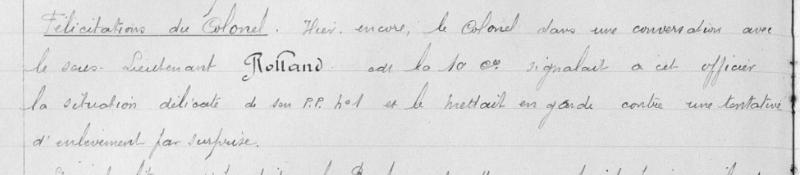 Félicitations du Colonel. Hier encore, le Colonel dans une conversation avec
le sous-Lieutenant Rolland de la 10 Cie signalait à cet officier
la situation délicate de son P.P. no1 et le mettait en garde contre une tentative
d'enlèvement par surprise.